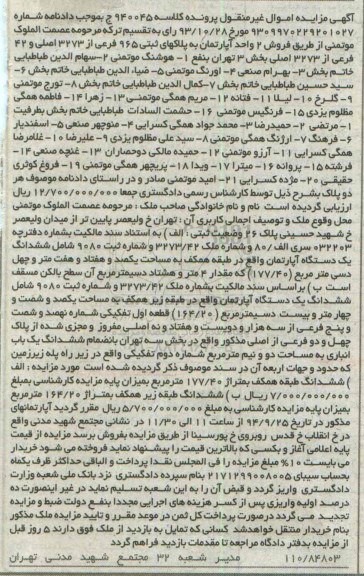 آگهی مزایده اموال غیرمنقول پرونده کلاسه ۹۴۰۰۴۵ ج بموجب دادنامه شماره
۹۳۰۹۹۷۰۲۲۹۲۰۱۰۲۷ مورخ ۹۳/۱۰/۲۸ رای به تقسیم ترکه مرحومه عصمت الملوک
موتمنی از طریق فروش ۲ واحد آپارتمان به پلاکهای ثبتی ۹۶۵ فرعی از ۳۲۷۳ اصلی و ۴۲
فرعی از ۳۲۷۳ اصلی بخش ۳ تهران بنفع ۱- هوشنگ موتمنی ۲-سهام الدین طباطبایی
خاتم بخش ۳- بهرام صنعی ۴- اورنگ موتمنی ۵- ضیاء الدین طباطبایی خاتم بخش ۶-
سید حسین طباطبایی خاتم بخش ۷-کمال الدین طباطبایی خاتم بخش ۸- تورج موتمنی
۹- گلرخ ۱۰- لیلا ۱۱- فتانه ۱۲- مریم همگی موتمنی ۱۳- زهرا ۱۴- فاطمه همگی
مظلوم یزدی ۱۵- فرنگیس موتمنی ۱۶- حشمت السادات طباطبایی خاتم بخش بطرفیت
۱- مرتضی ۲- حمیدرضا ۳- محمد جواد همگی کسرایی ۴- منوچهر صنعی ۵- اسفندیار
۶- فرهنگ ۷- ارژنگ همگی موتمنی ۸- سید علی مظلوم یزدی ۹- علیرضا ۱۰- غلامرضا
همگی کسرایی ۱۱- آرزو موتمنی ۱۲- حمیده مالکی دوحصاران ۱۳- غنچه صنعی ۱۴-
فرشته ۱۵- پروانه ۱۶- میترا ۱۷- ویدا ۱۸- پریچهر همگی موتمنی ۱۹- فروغ کوثری
حقیقی ۲۰- مژده کسرایی ۲۱- امید موتمنی صادر و در راستای دادنامه موصوف هر
دو پلاک بشرح ذیل توسط کارشناس رسمی دادگستری جمعا ۱۲/۷۰۰/۰۰۰/۰۰۰ ریال
ارزیابی گردیده است نام و نام خانوادگی صاحب ملک : مرحومه عصمت الملوک موتمنی
محل وقوع ملک و توصیف اجمالی کاربری آن : تهران خ ولیعصر پایین تر از میدان ولیعصر
خ شهید حسینی پلاک ۲۶ وضعیت ثبتی : الف ) به استناد سند مالکیت بشماره دفترچه
۰۳۲۲۰۳ سری الف/۸۰ و شماره ملک ۳۲۷۳/۴۲ و شماره ثبت ۹۰۸۰ شامل ششدانگ
یک دستگاه آپارتمان واقع در طبقه همکف به مساحت یکصد و هفتاد و هفت متر و چهل
دسی متر مربع (۱۷۷/۴۰) که مقدار ۴ متر و هشتاد دسیمترمربع آن سطح بالکن مسقف
است ب ) براساس سند مالکیت بشماره ملک ۳۲۷۳/۴۲ و شماره ثبت ۹۰۸۰ شامل
ششدانگ یک دستگاه آپارتمان واقع در طبقه زیر همکف به مساحت یکصد و شصت و
چهار متر و بیست دسیمترمربع (۱۶۴/۲۰) قطعه اول تفکیکی شماره نهصد و شصت
و پنج فرعی از سه هزار و دویست و هفتاد و نه اصلی مفروز و مجزی شده از پلاک
چهل و دو فرعی از اصلی مذکور واقع در بخش سه تهران بانضمام ششدانگ یک باب
انباری به مساحت دو و نیم مترمربع شماره دوم تفکیکی واقع در زیر راه پله زیرزمین
که حدود و جهات اربعه آن در سند موصوف ذکر گردیده شده است مورد مزایده : الف
) ششدانگ طبقه همکف بمتراژ ۱۷۷/۴۰ مترمربع بمیزان پایه مزایده کارشناسی بمبلغ
۷/۰۰۰/۰۰۰/۰۰۰ ریال ب ) ششدانگ طبقه زیر همکف بمتراژ ۱۶۴/۲۰ مترمربع
بمیزان پایه مزایده کارشناسی به مبلغ ۵/۷۰۰/۰۰۰/۰۰۰ ریال مقرر گردید آپارتمانهای
مذکور در تاریخ ۹۴/۹/۲۵ از ساعت ۱۱ الی ۱۱/۳۰ در نشانی مجتمع شهید مدنی واقع
در خ انقلاب خ قدس روبروی خ پورسینا از طریق مزایده بفروش برسد مزایده از قیمت
پایه اعلامی آغاز و بکسی که بالاترین قیمت را پیشنهاد نماید فروخته می شود خریدار
می بایست ۱۰% مبلغ مزایده را فی المجلس نقدا پرداخت و الباقی حداکثر ظرف یکماه
بحساب سیبای ۲۱۷۱۲۹۹۰۰۸۰۰۵ بنام سپرده دادگستری نزد بانک ملی شعبه وزارت
دادگستری واریز گردد و قبض آن را به این شعبه تسلیم نماید در غیر اینصورت ده
درصد اولیه واریزی پس از کسر هزینه های اجرایی مجددا بنفع دولت ضبط و مزایده
تجدید می گردد درصورت پرداخت کل ثمن در موعد مقرر و تایید مزایده ملک مذکور
بنام خریدار منتقل خواهدشد کسانی که تمایل به بازدید از ملک فوق دارند ۵ روز قبل
از مزایده بدفتر دادگاه مراجعه تا مقدمات بازدید فراهم گردد
۱۱۰/۸۴۸۰۳ مدیر شعبه ۳۲ مجتمع شهید مدنی تهران